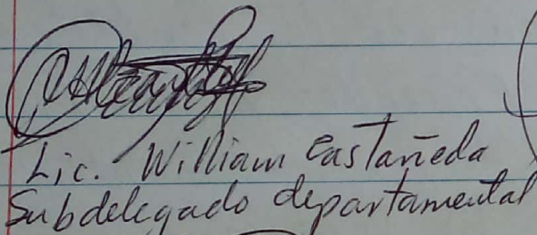 Lic. William Castañeda
Subdelegado departamental